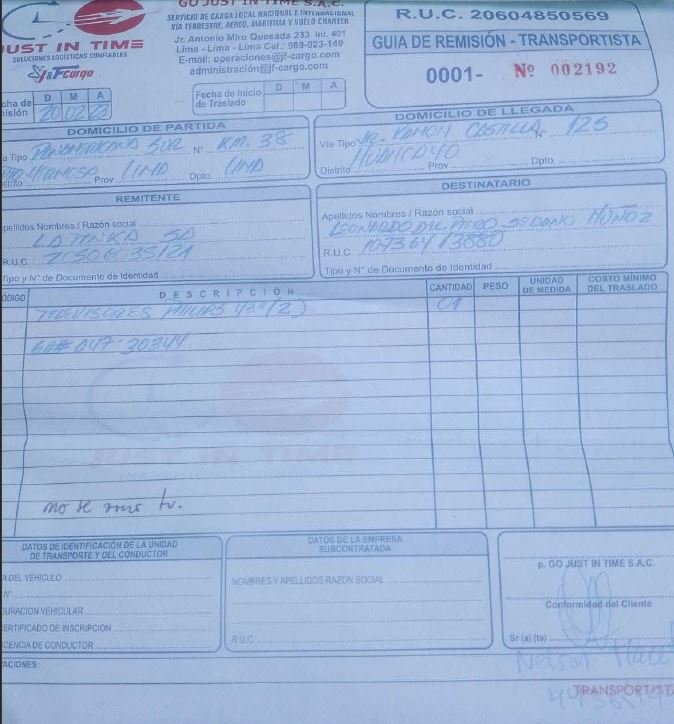 GO JUST IN TIME S.A.C.
SERVICIO DE CARGA LOCAL NACIONAL E INTERNACIONAL
VIA TERRESTRE, AEREO, MARITIMA Y VUELO CHARTER
Jr. Antonio Miro Quesada 233 Int. 401
Lima - Lima - Lima Cel.: 989-923-149
E-mail: operaciones@jf-cargo.com
administración@jf-cargo.com
JUST IN TIME
SOLUCIONES LOGISTICAS CONFIABLES
J&Fcargo
R.U.C. 20604850569
GUIA DE REMISIÓN - TRANSPORTISTA
0001- Nº 002192
cha de
isión
D M A
20 02 23
Fecha de Inicio
de Traslado
D M A
DOMICILIO DE PARTIDA
a Tipo PANAMERICANA SUR N° KM. 38
strito HERMOSA Prov LIMA Dpto. LIMA
DOMICILIO DE LLEGADA
Vía Tipo JR. RAMON CASTILLA N° 125
Distrito HUANCAYO Prov Dpto.
REMITENTE
pellidos Nombres / Razón social
LA TINKA SA
R.U.C.
Tipo y N° de Documento de Identidad
DESTINATARIO
Apellidos Nombres / Razón social
LEONARDO DEL PIERO SEDANO MUÑOZ
R.U.C.
Tipo y N° de Documento de Identidad
ÓDIGO DESCRIPCIÓN CANTIDAD PESO UNIDAD DE MEDIDA COSTO MÍNIMO DEL TRASLADO
TELEVISORES PHILIPS 43" (2) 01
047-30344
no se tv.
DATOS DE IDENTIFICACIÓN DE LA UNIDAD
DE TRANSPORTE Y DEL CONDUCTOR
A DEL VEHICULO
N°
GURACION VEHICULAR
ERTIFICADO DE INSCRIPCION
CENCIA DE CONDUCTOR
DATOS DE LA EMPRESA
SUBCONTRATADA
NOMBRES Y APELLIDOS RAZON SOCIAL
R.U.C.
p. GO JUST IN TIME S.A.C.
Conformidad del Cliente
Sr (a) (ta)
Nelson
ACIONES:
TRANSPORTISTA